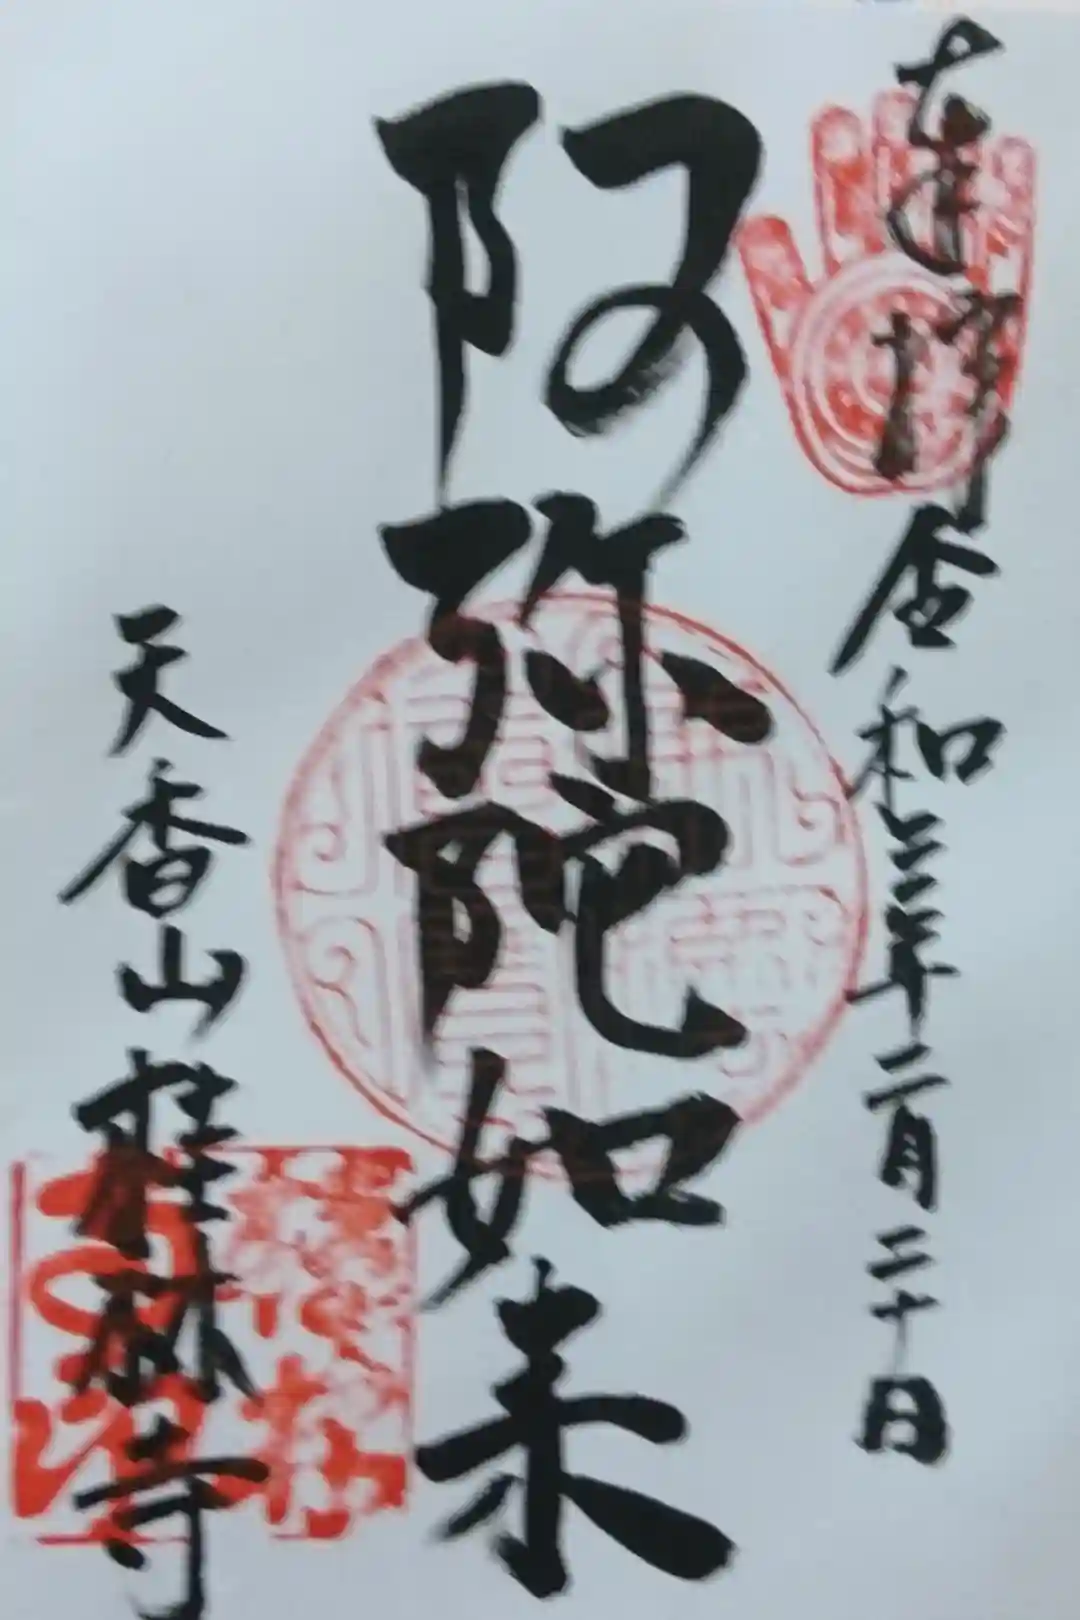 奉拝
令和二年二月二十日
阿弥陀如来
天香山桂林寺